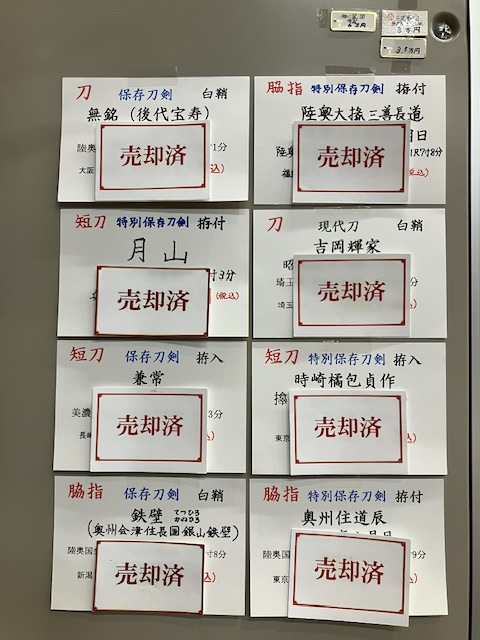 3万円
3.5万円
刀 保存刀剣 白鞘
無銘（後代宝寿）
陸奥
1分
大阪
込)
売却済
脇指 特別保存刀剣 拵付
陸奥大掾三善長道
日
陸奥
1尺7寸8分
税込)
売却済
短刀 特別保存刀剣 拵付
月山
寸3分
(税込)
売却済
刀 現代刀 白鞘
吉岡輝家
昭
埼玉
埼玉
込)
売却済
短刀 保存刀剣 拵入
兼常
美濃
3分
長崎
込)
売却済
短刀 特別保存刀剣 拵入
時崎橘包貞作
東京
込)
売却済
脇指 保存刀剣 白鞘
鉄壁 てつひろ かねひろ
(奥州会津住長国 銀山鉄壁)
陸奥国
寸8分
新潟
込)
売却済
脇指 特別保存刀剣 拵付
奥州住道辰
月日
陸奥国
9分
東京
込)
売却済